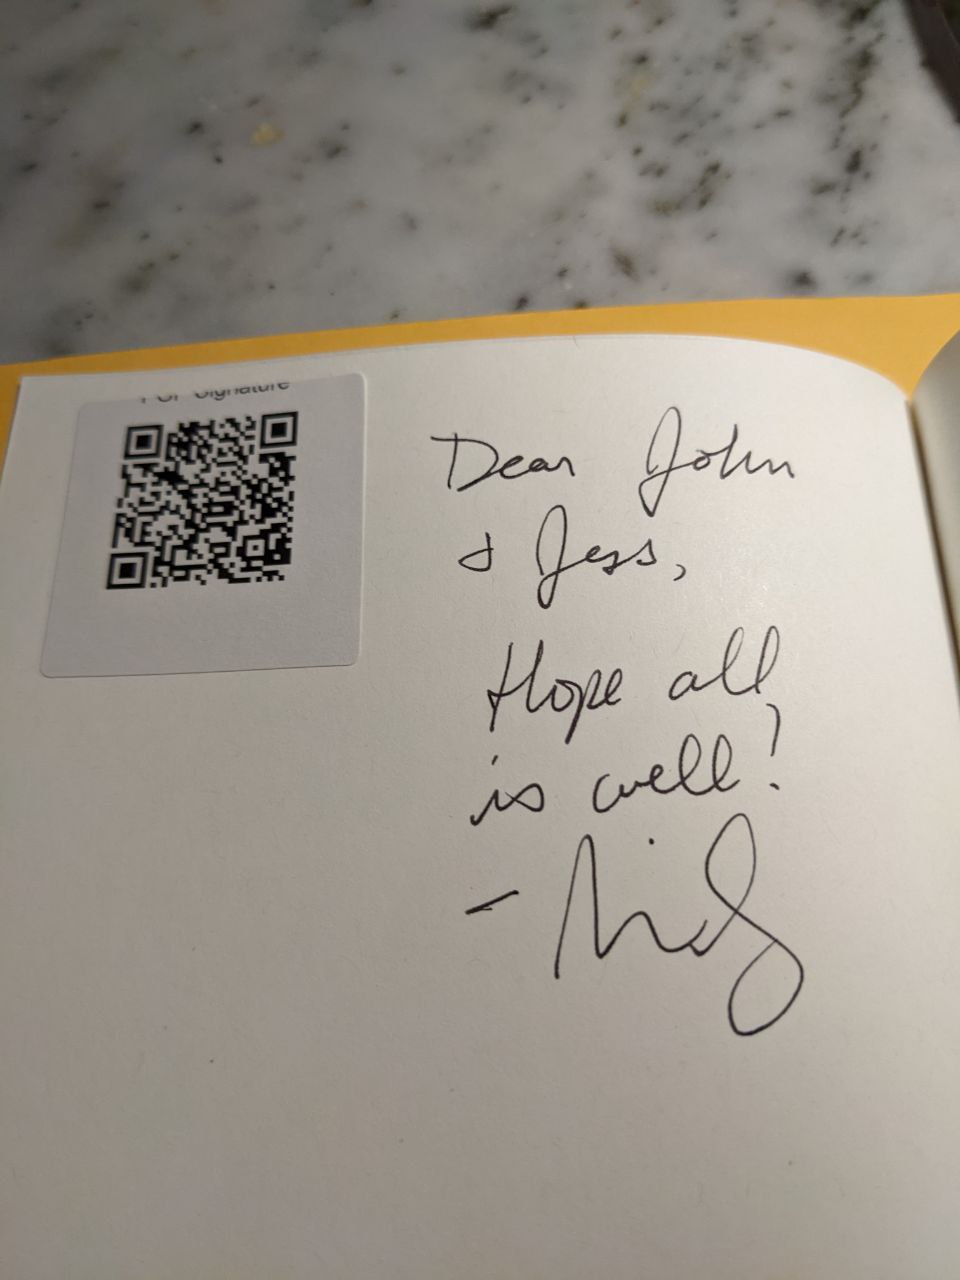 Signature
Dear John
& Jess,
Hope all
is well!